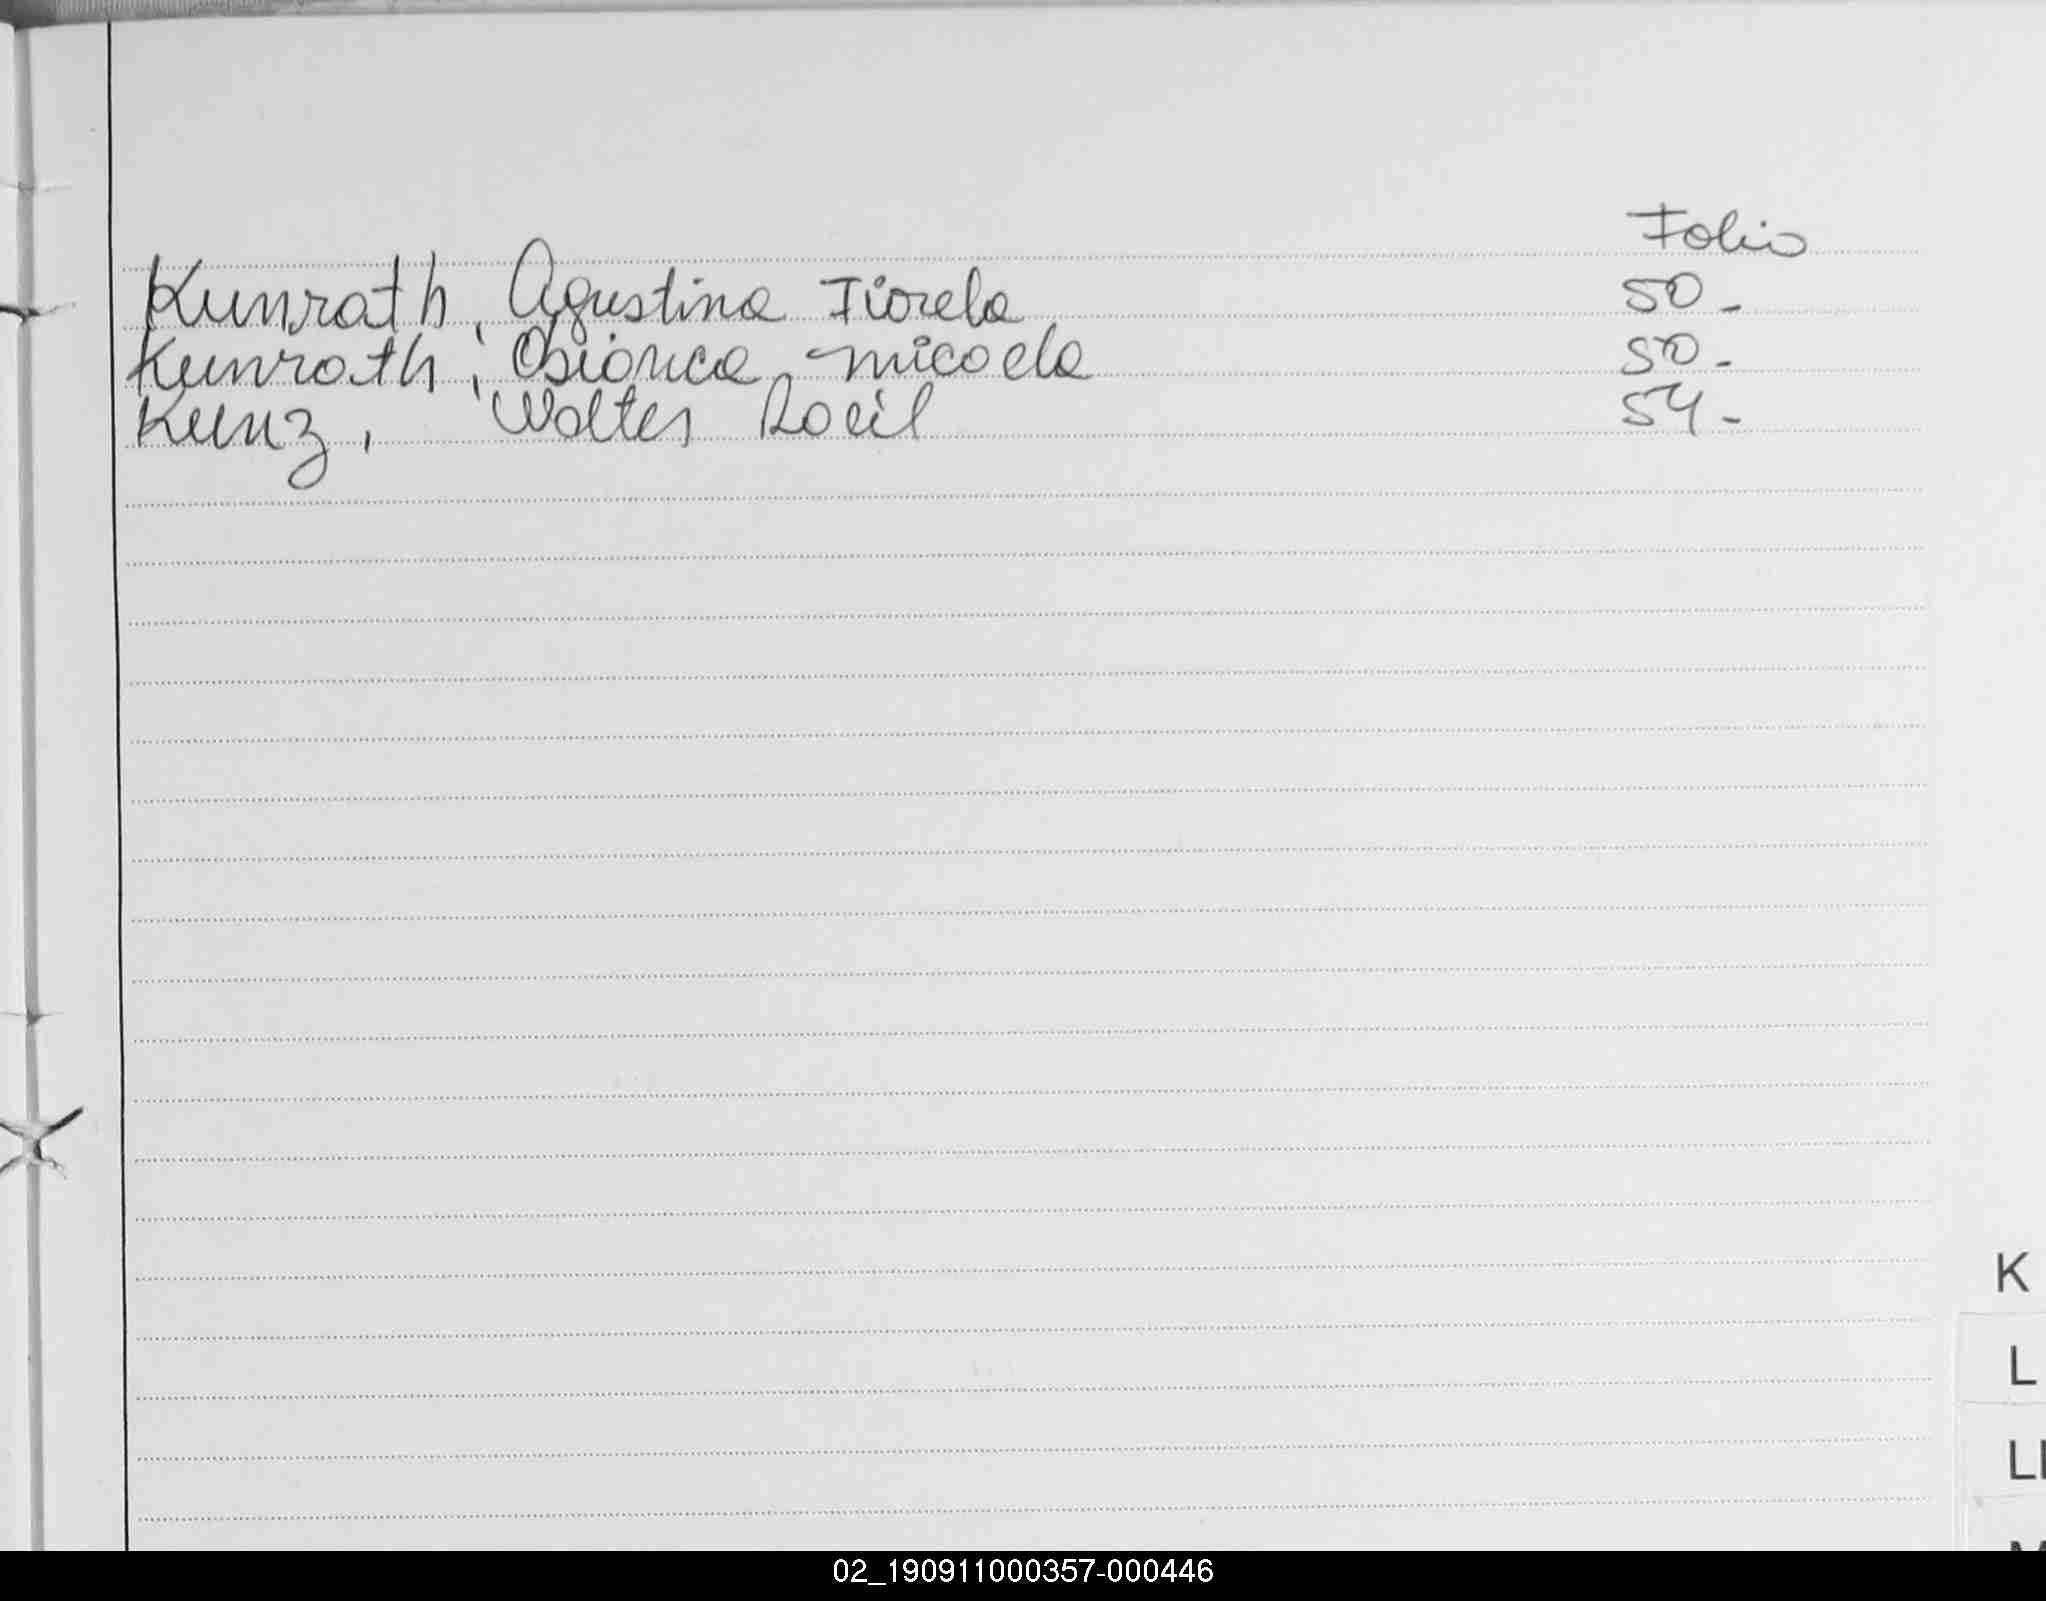 Folio
Kunrath, Agustina Fiorela 50-
Kunrath, Bianca Micaela 50-
Kunz, Walter Raúl 54-
K
L
LL
02_190911000357-000446